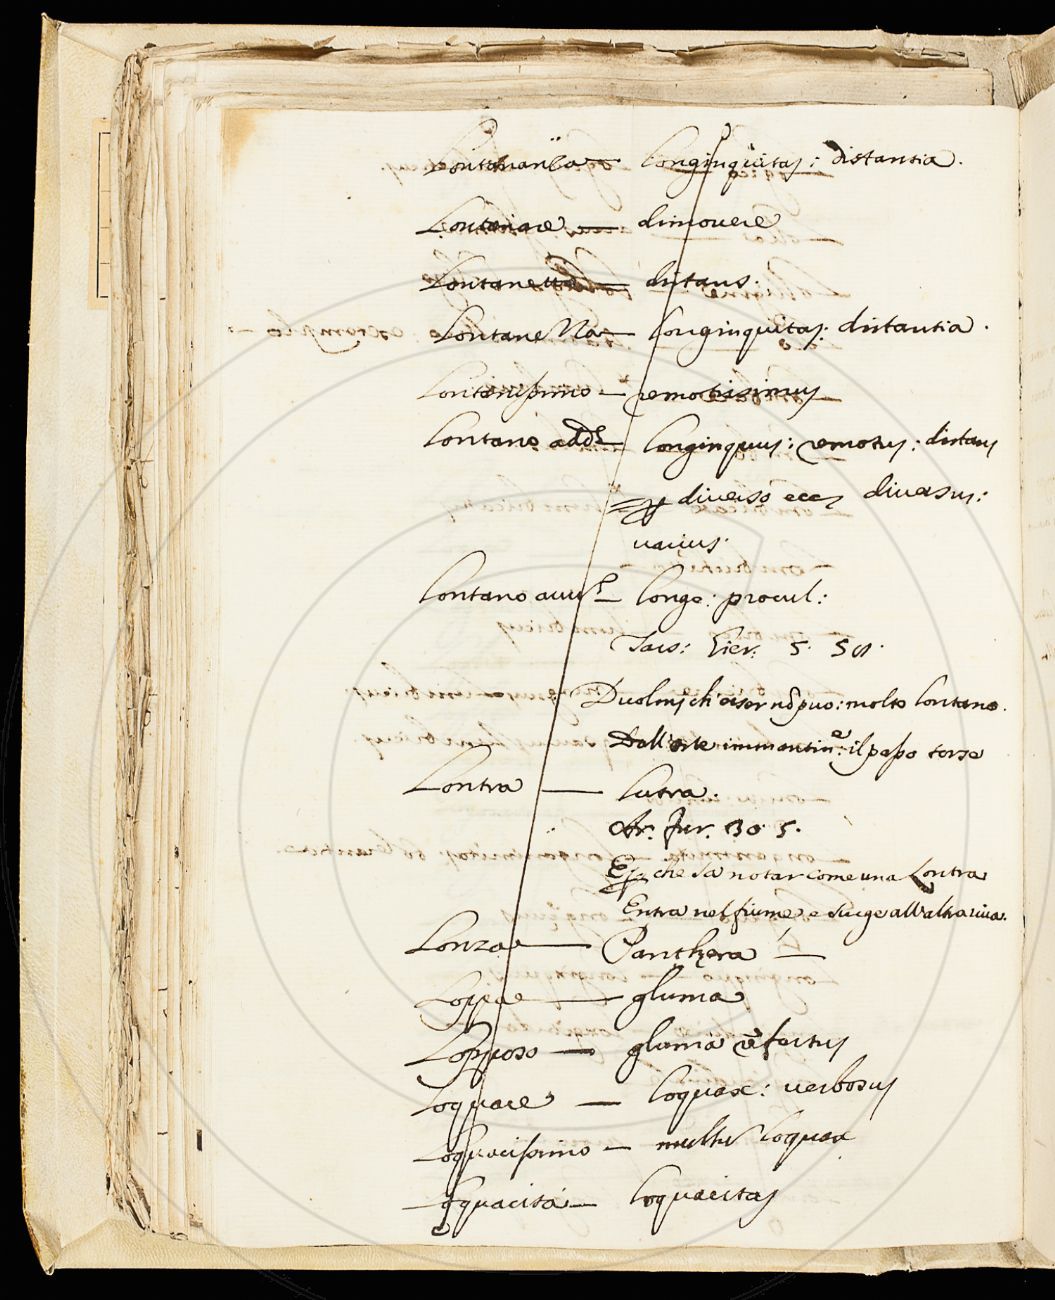 Lontananza — Longinquitas: distantia.
Lontanare — dimouere
Lontanetto — distans:
Lontanezza — Longinquitas: distantia.
Lontanissimo — remotissimus
Lontano add. — Longinquus: remotus: distans
diverso diversus:
varius.
Lontano avu. — Longe: procul:
Tass: Gier. 5.
Duolmi ch'esser nō può: molto lontano.
Dall'arte il passo torse
Lontra — Lutra.
Ar. Fur. 30. 5.
E che sa notar come una Lontra
Entra nel fiume, e surge all'altra riua.
Lonza — Panthera —
Loppa — gluma
Lopposo — gluma refertus
Loquace — Loquax: verbosus
Loquacissimo — multum loquax
Loquacità — Loquacitas